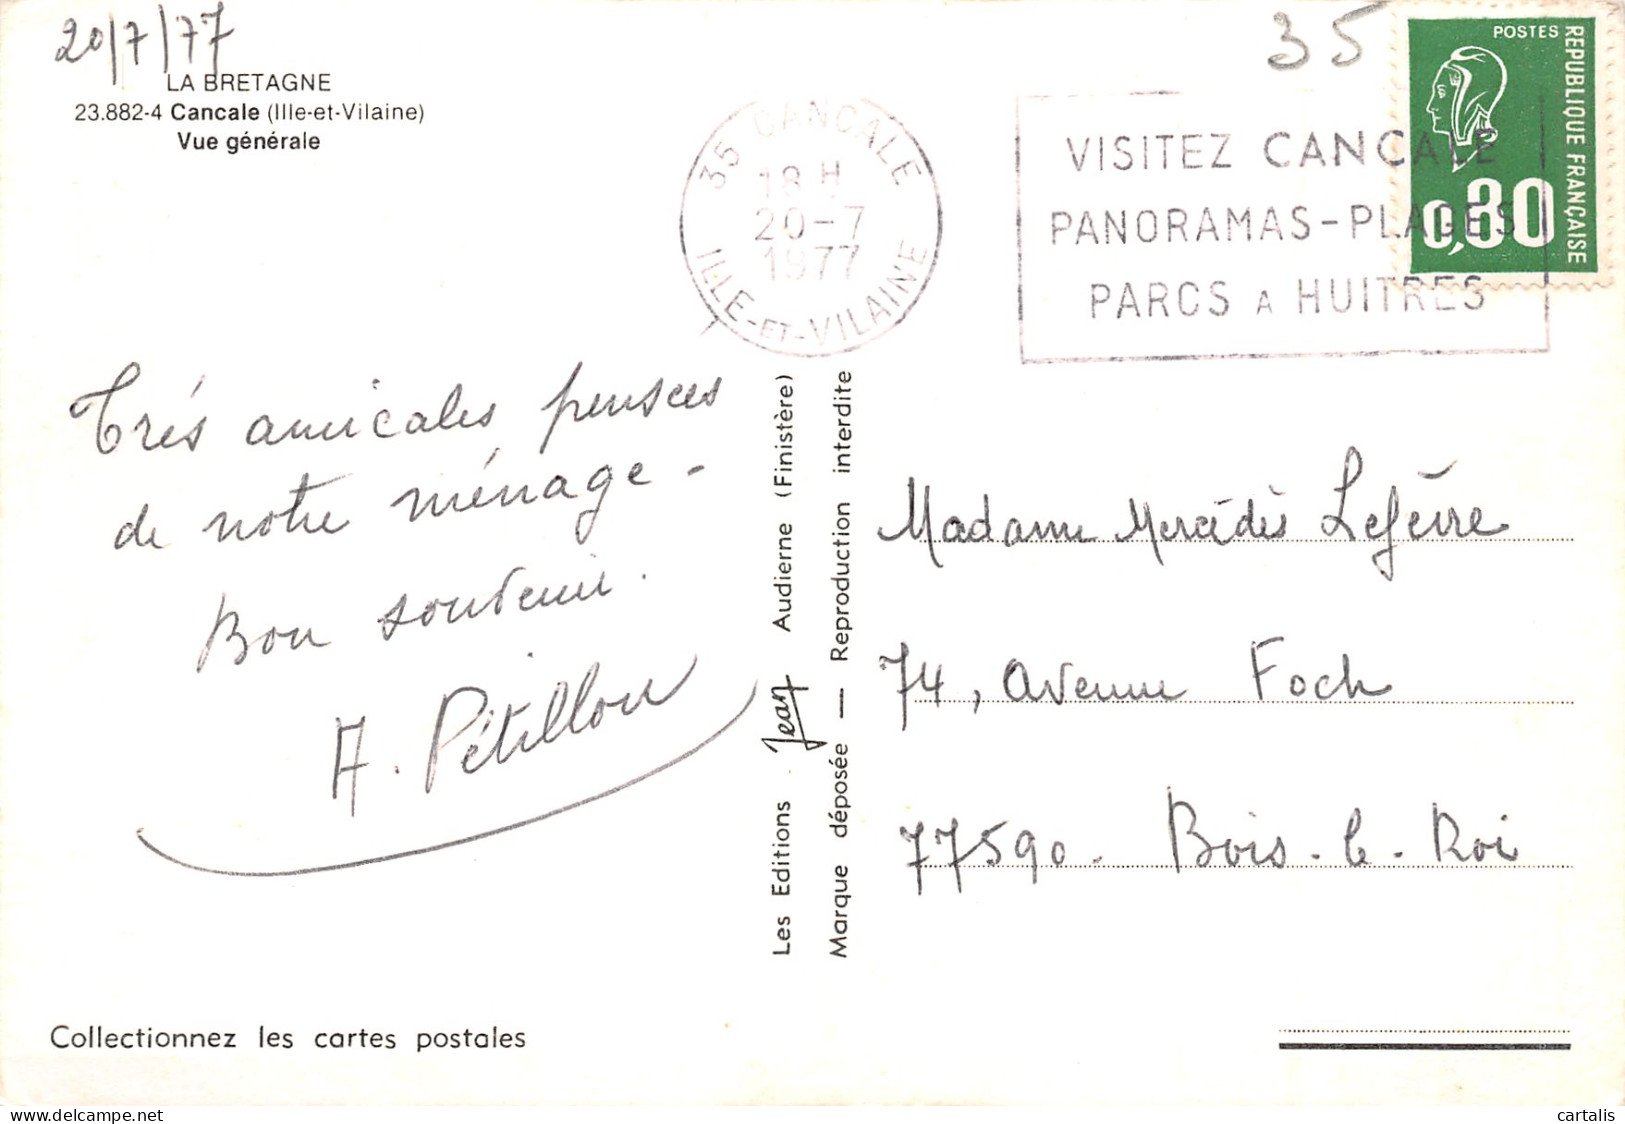 20/7/77
LA BRETAGNE
23.882-4 Cancale (Ille-et-Vilaine)
Vue générale
35
POSTES
REPUBLIQUE FRANÇAISE
0,80
35 CANCALE
18 H
20-7
1977
ILLE-ET-VILAINE
VISITEZ CANCALE
PANORAMAS-PLAGES
PARCS A HUITRES
Trés amicales pensées
de notre ménage -
Bon souvenir.
A. Pétillon
Les Editions Jean Audierne (Finistère)
Marque déposée — Reproduction interdite
Madame Mercédès Lefèvre
74, Avenue Foch
77590. Bois-le-Roi
Collectionnez les cartes postales
cartalis